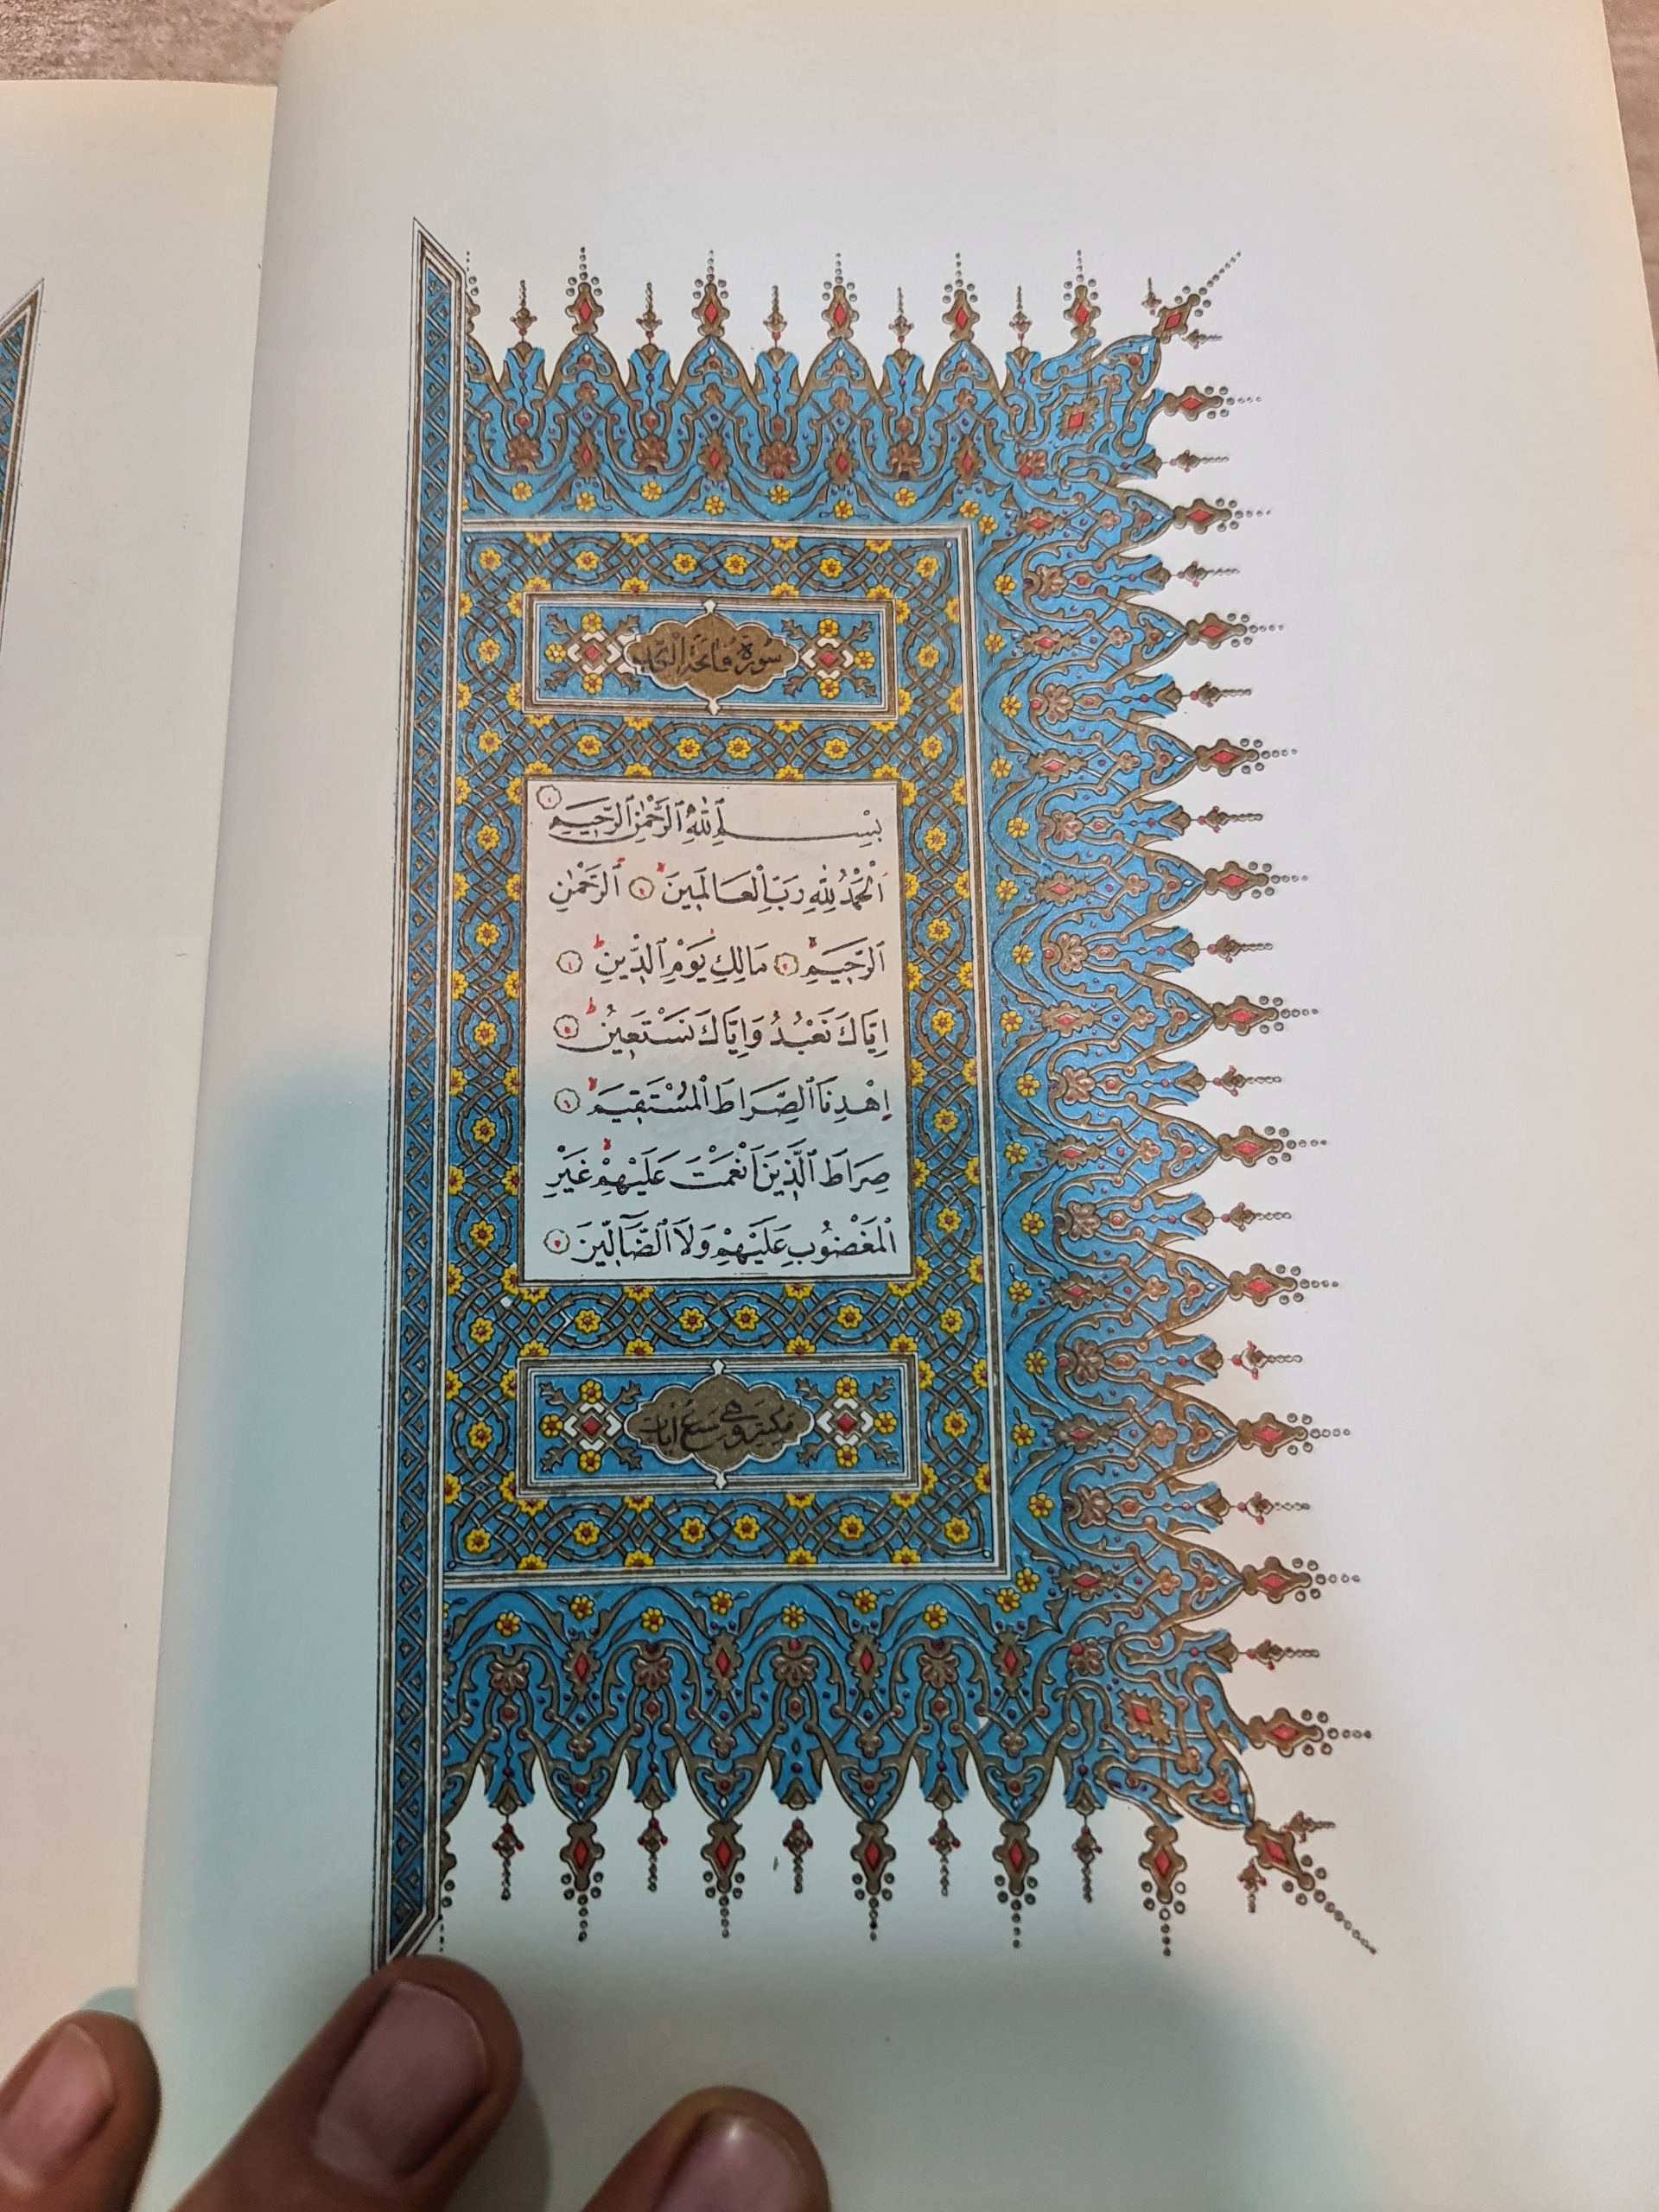 سُورَةُ فَاتِحَةِ الْكِتَابِ
بِسْمِ ٱللّٰهِ ٱلرَّحْمٰنِ ٱلرَّحِيمِ ١
اَلْحَمْدُ لِلّٰهِ رَبِّ الْعَالَمِينَ ٢ ٱلرَّحْمٰنِ
ٱلرَّحِيمِ ٣ مَالِكِ يَوْمِ ٱلدِّينِ ٤
اِيَّاكَ نَعْبُدُ وَاِيَّاكَ نَسْتَعِينُ ٥
اِهْدِنَا ٱلصِّرَاطَ الْمُسْتَقِيمَ ٦
صِرَاطَ ٱلَّذِينَ اَنْعَمْتَ عَلَيْهِمْ غَيْرِ
الْمَغْضُوبِ عَلَيْهِمْ وَلَا ٱلضَّٓالِّينَ ٧
مكية وهي سبع آيات